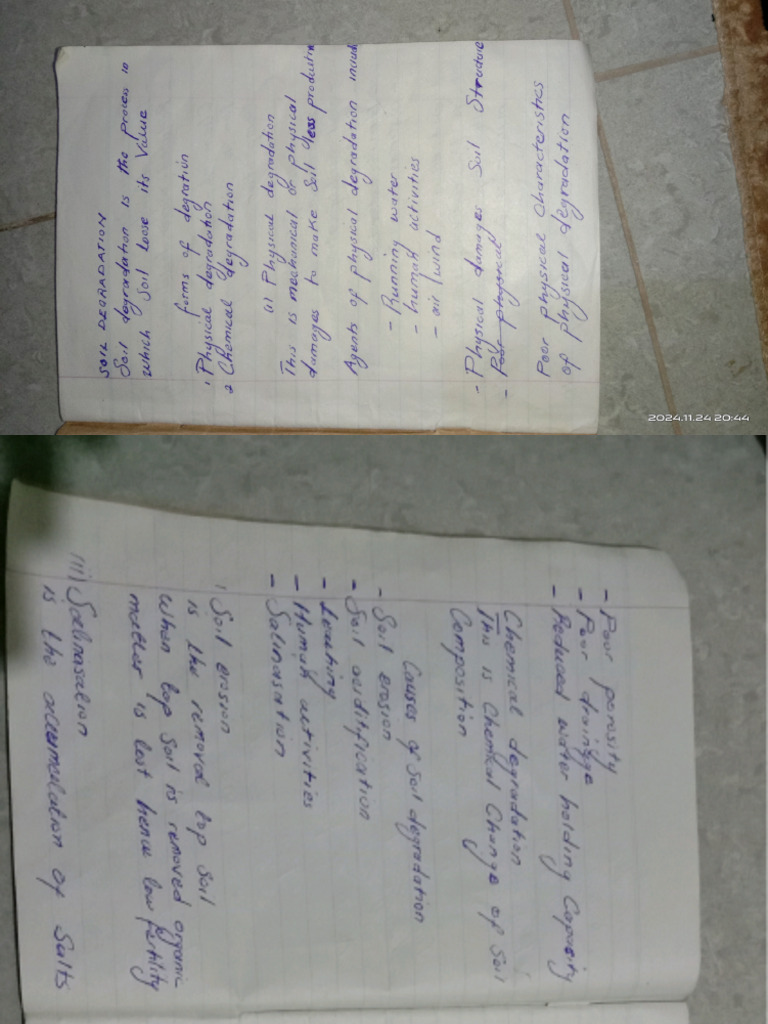 SOIL DEGRADATION
Soil degradation is the process in
which Soil loose its Value
forms of degration
1 Physical degradation
2 Chemical degradation
(a) Physical degradation
This is mechanical or physical
damages to make Soil less productiv
Agents of physical degradation includ
- Running water
- human activities
- air/wind
- Physical damages Soil Structure
- Poor physical
Poor physical Characteristics
of physical degradation
2024.11.24 20:44
- Poor porosity
- Poor drainge
- Reduced water holding Capacity
Chemical degradation
This is Chemical Change of Soil
Composition
Causes of Soil degradation
- Soil erosion
- Soil acidification
- Leaching
- Human activities
- Salinasation
i Soil erosion
is the removal top Soil
When top Soil is removed organi-
matter is lost hence low fertility
iii) Salinasation
is the accumulation of Salts